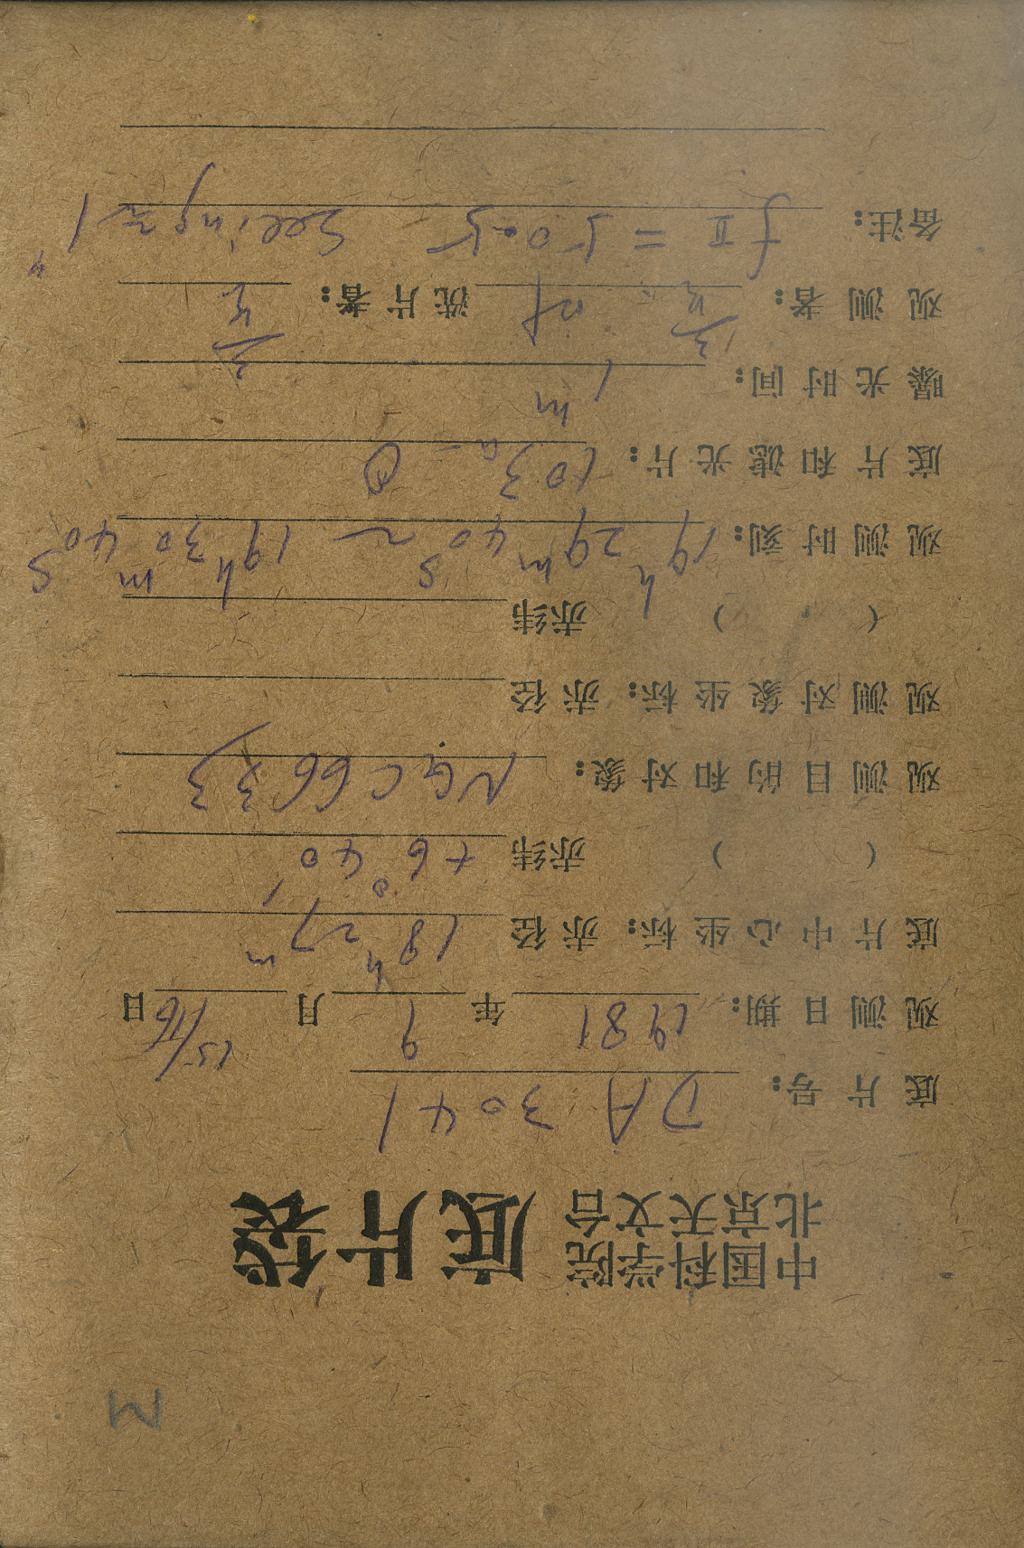 M
中国科学院
北京天文台
底片袋
底片号: DA 3041
观测日期: 1981年9月15/16日
底片中心坐标: 赤径 18h 27m
( ) 赤纬 +6° 40′
观测目的和对象: NGC 6633
观测对象坐标: 赤径
( ) 赤纬
观测时刻: 19h 29m 40s ~ 19h 30m 40s
底片和滤光片: 103a-O
曝光时间: 1m
观测者: 洗片者:
备注: fII = 50.5 Seeing=1″